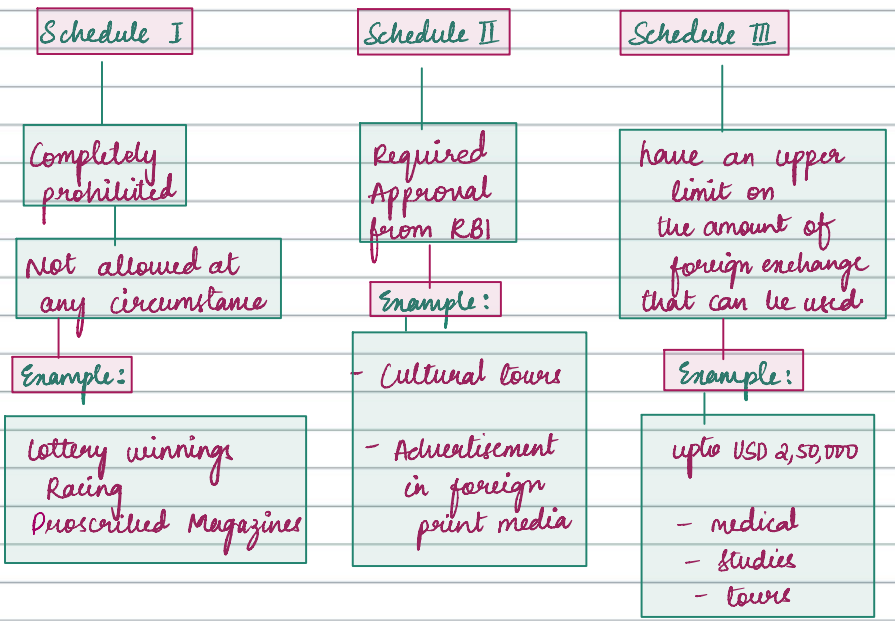 Schedule I
Completely
prohibited
Not allowed at
any circumstance
Example:
Lottery winnings
Racing
Proscribed Magazines
Schedule II
Required
Approval
from RBI
Example:
- Cultural tours
- Advertisement
in foreign
print media
Schedule III
have an upper
limit on
the amount of
foreign exchange
that can be used.
Example:
upto USD 2,50,000
- medical
- studies
- tours